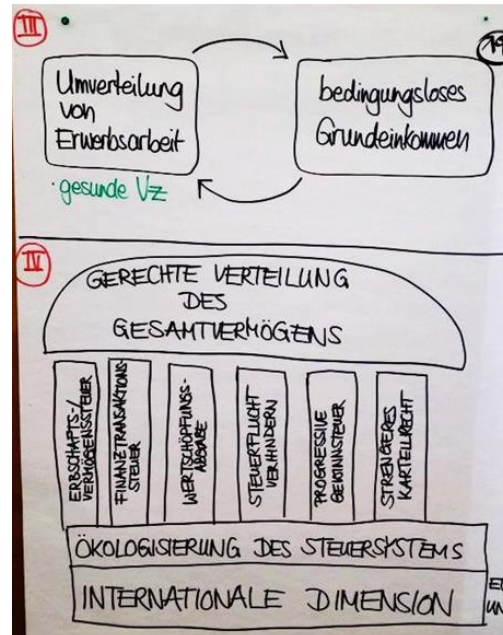 III
19
Umverteilung
von
Erwerbsarbeit
· gesunde Vz
bedingungsloses
Grundeinkommen
IV
GERECHTE VERTEILUNG
DES
GESAMTVERMÖGENS
ERBSCHAFTS-/
VERMÖGENSSTEUER
FINANZTRANSAKTIONS-
STEUER
WERTSCHÖPFUNGS-
ABGABE
STEUERFLUCHT
VERHINDERN
PROGRESSIVE
GEWINNSTEUER
STRENGERES
KARTELLRECHT
ÖKOLOGISIERUNG DES STEUERSYSTEMS
INTERNATIONALE DIMENSION